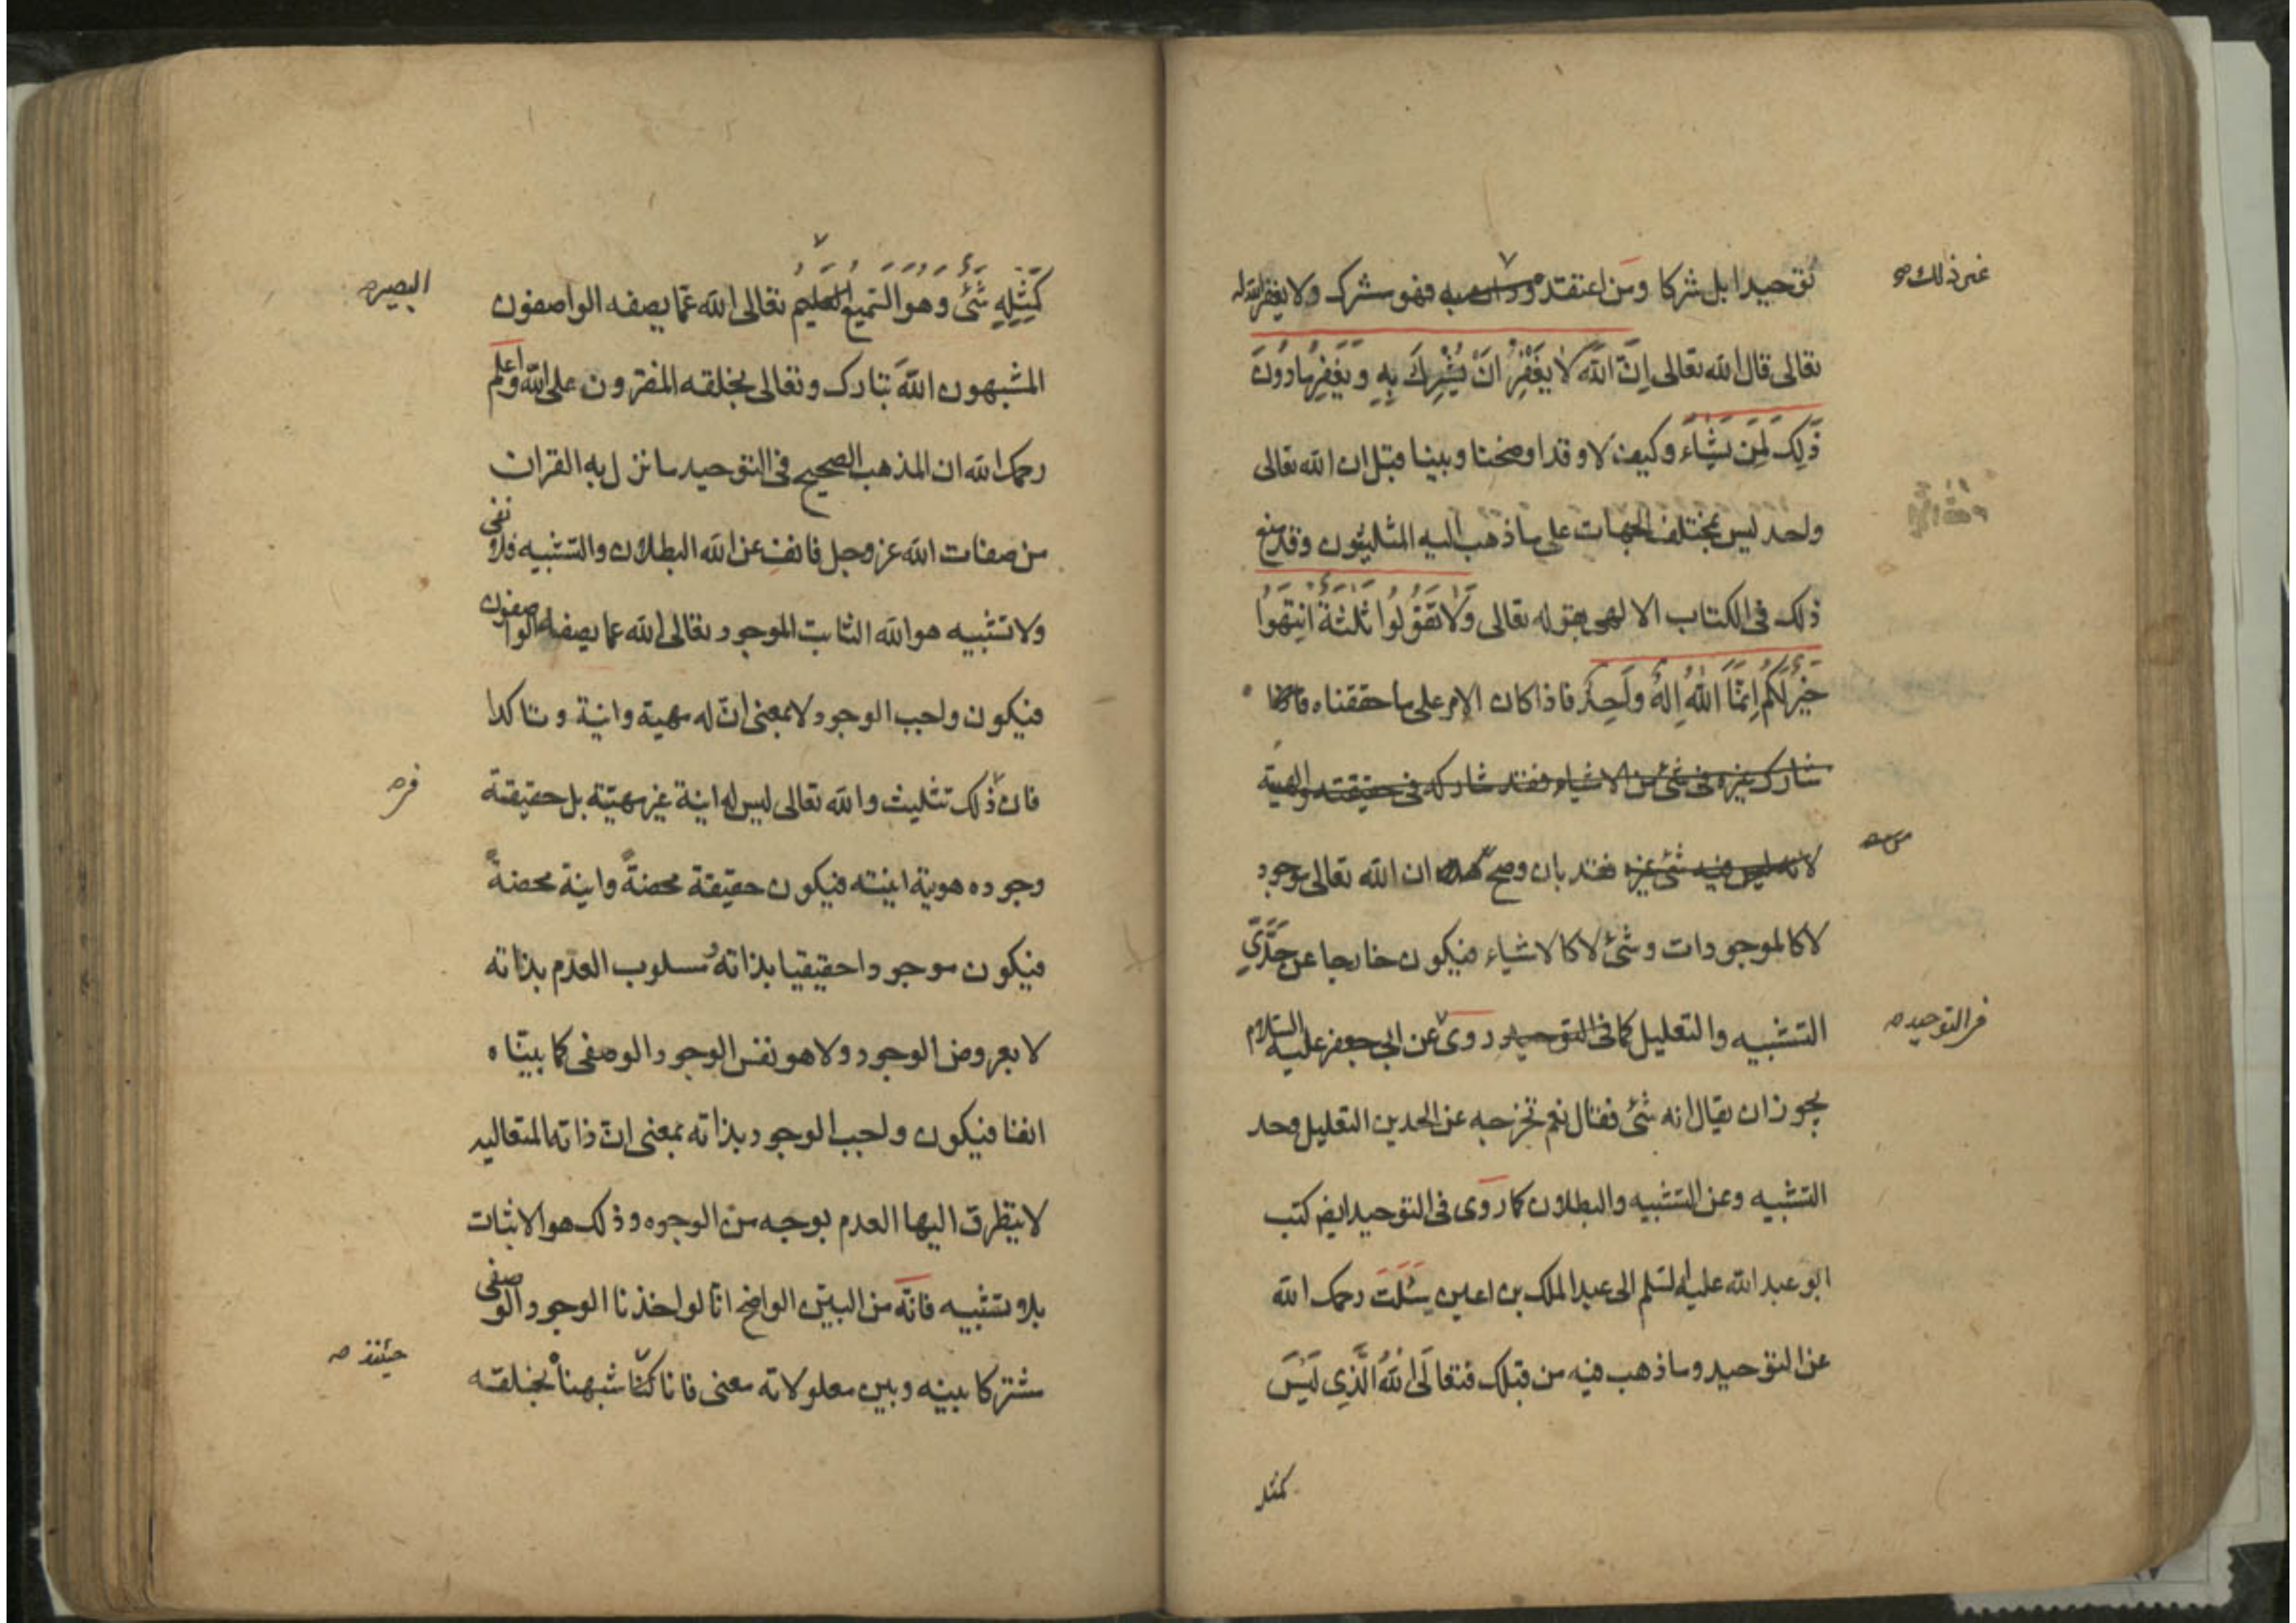 توحيدا بل شركا ومن اعتقد به فهو مشرك ولا يغفر الله له
غير ذلك صح
تعالى قال الله تعالى اِنَّ اللّٰهَ لَا يَغْفِرُ اَنْ يُشْرِكَ بِهِ وَيَغْفِرُ مَا دُونَ
ذٰلِكَ لِمَن يَشَاءُ وكيف لا وقد اوضحنا وبينا قبل ان الله تعالى
واحد ليس بمختلف الجهات على ما ذهب اليه المثلثون وقد منع
ذلك فى الكتاب الالهى بقوله تعالى وَلَا تَقُولُوا ثَلٰثَةٌ اَنْتَهُوا
خَيْرًا لَكُمْ اِنَّمَا اللّٰهُ اِلٰهٌ وَاحِدٌ فاذا كان الامر على ما حققناه
شارك غيره فى شئ من الاشياء فقد شاركه فى حقيقته والهيته
لانه ليس فيه شئ غيره فقد بان وصح ان الله تعالى موجود
لا كالموجودات وشئ لا كالاشياء فيكون خارجا عن حَدَّيِ
التشبيه والتعليل كما فى التوحيد روى عن ابى جعفر عليه السلام
فى التوحيد ص
يجوز ان يقال انه شئ فقال نعم تخرجه عن الحدين التعليل وحد
التشبيه وعن التشبيه والبطلان كما روى فى التوحيد ايض كتب
ابو عبد الله عليه السلم الى عبد الملك بن اعين سَئَلْتَ رحمك الله
عن التوحيد وما ذهب فيه من قبلك فتعالَى اللّٰهُ الَّذِى لَيْسَ
كمثله
كَمِثْلِهِ شَئٌ وَهُوَ السَّمِيعُ العليم تعالى الله عمّا يصفه الواصفون
البصير ص
المشبهون اللّٰهَ تبارك وتعالى بخلقه المفترون على الله واعلم
رحمك الله ان المذهب الصحيح فى التوحيد ما نزل به القران
من صفات الله عز وجل فانف عن الله البطلان والتشبيه فلا نفى
ولا تشبيه هو الله الثابت الموجود تعالى الله عما يصفه الواصفون
فيكون واجب الوجود لا بمعنى انّ له مهية وانية وتاكدا
فان ذلك تثليث والله تعالى ليس له انية غير مهيّته بل حقيقة
وجوده هوية انيته فيكون حقيقة محضةً وانية محضةً
فيكون موجودا حقيقيا بذاته مسلوب العدم بذاته
لا بعروض الوجود ولا هو نفس الوجود الوصفى كما بيّناه
انفا فيكون واجب الوجود بذاته بمعنى انّ ذاته المتعاليه
لا يتطرق اليها العدم بوجه من الوجوه وذلك هو الاثبات
بلا تشبيه فانّه من البيّن الواضح انّا لو اخذنا الوجود الوصفى
مشتركا بينه وبين معلولاته معنى فانا كنّا شبهناه بخلقه
حينئذ ص